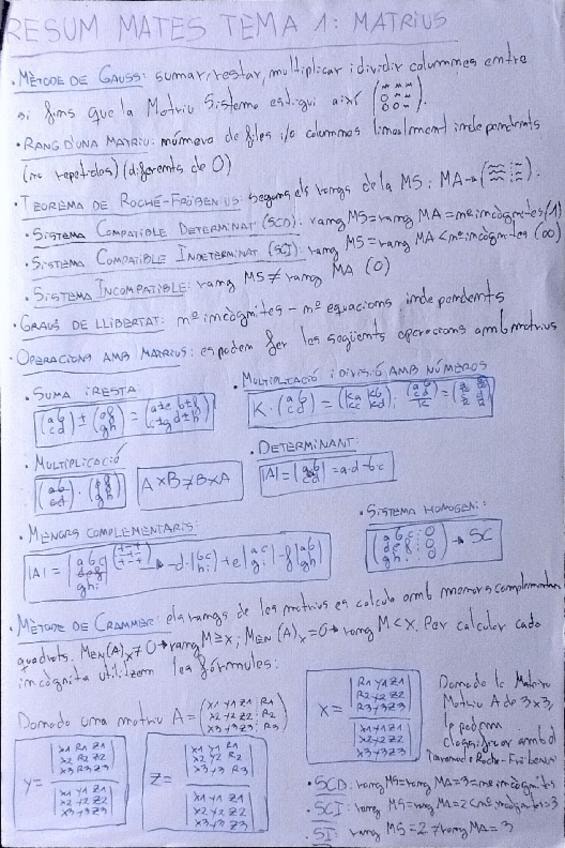 RESUM MATES TEMA 1: MATRIUS
· MÈTODE DE GAUSS: sumar, restar, multiplicar i dividir columnes entre
si fins que la Matriu Sistema estigui així
· RANG D'UNA MATRIU: número de files i/o columnes linealment independents
(no repetides) (diferents de 0)
· TEOREMA DE ROCHÉ-FRÖBENIUS: segons els rangs de la MS i MA →
· SISTEMA COMPATIBLE DETERMINAT (SCD): rang MS = rang MA = nº incògnites (1)
· SISTEMA COMPATIBLE INDETERMINAT (SCI): rang MS = rang MA < nº incògnites (∞)
· SISTEMA INCOMPATIBLE: rang MS ≠ rang MA (0)
· GRAUS DE LLIBERTAT: nº incògnites - nº equacions independents
· OPERACIONS AMB MATRIUS: es poden fer les següents operacions amb matrius
· SUMA I RESTA
(a b
c d) ± (e f
g h) = (a±e b±f
c±g d±h)
· MULTIPLICACIÓ I DIVISIÓ AMB NÚMEROS
K · (a b
c d) = (ka kb
kc kd);
· MULTIPLICACIÓ
(a b
c d) · (e f
g h)
A×B ≠ B×A
· DETERMINANT:
|A| = |a b
c d| = a·d - b·c
· MENORS COMPLEMENTARIS:
|A| = |a b c
d e f
g h i| → -d·|b c
h i| + e|a c
g i| - f|a b
g h|
· SISTEMA HOMOGENI:
(a b c : 0
d e f : 0
g h i : 0) → SC
· MÈTODE DE CRAMMER: els rangs de les matrius es calcula amb menors complementaris
quadrats. MEN(A)x ≠ 0 → rang M ≥ x; MEN(A)x = 0 → rang M < x. Per calcular cada
incògnita utilitzem les fórmules:
Donada una matriu A = (X1 Y1 Z1 : R1
X2 Y2 Z2 : R2
X3 Y3 Z3 : R3)
Y = |X1 R1 Z1
X2 R2 Z2
X3 R3 Z3|
|X1 Y1 Z1
X2 Y2 Z2
X3 Y3 Z3|
Z = |X1 Y1 R1
X2 Y2 R2
X3 Y3 R3|
|X1 Y1 Z1
X2 Y2 Z2
X3 Y3 Z3|
X = |R1 Y1 Z1
R2 Y2 Z2
R3 Y3 Z3|
|X1 Y1 Z1
X2 Y2 Z2
X3 Y3 Z3|
Donada la Matriu
Matriu A de 3x3,
le podem
classificar amb el
Teorema de Roche-Fröbenius
· SCD: rang MS = rang MA = 3 = nº incògnites
· SCI: rang MS = rang MA = 2 < nº incògnites = 3
· SI: rang MS = 2 ≠ rang MA = 3